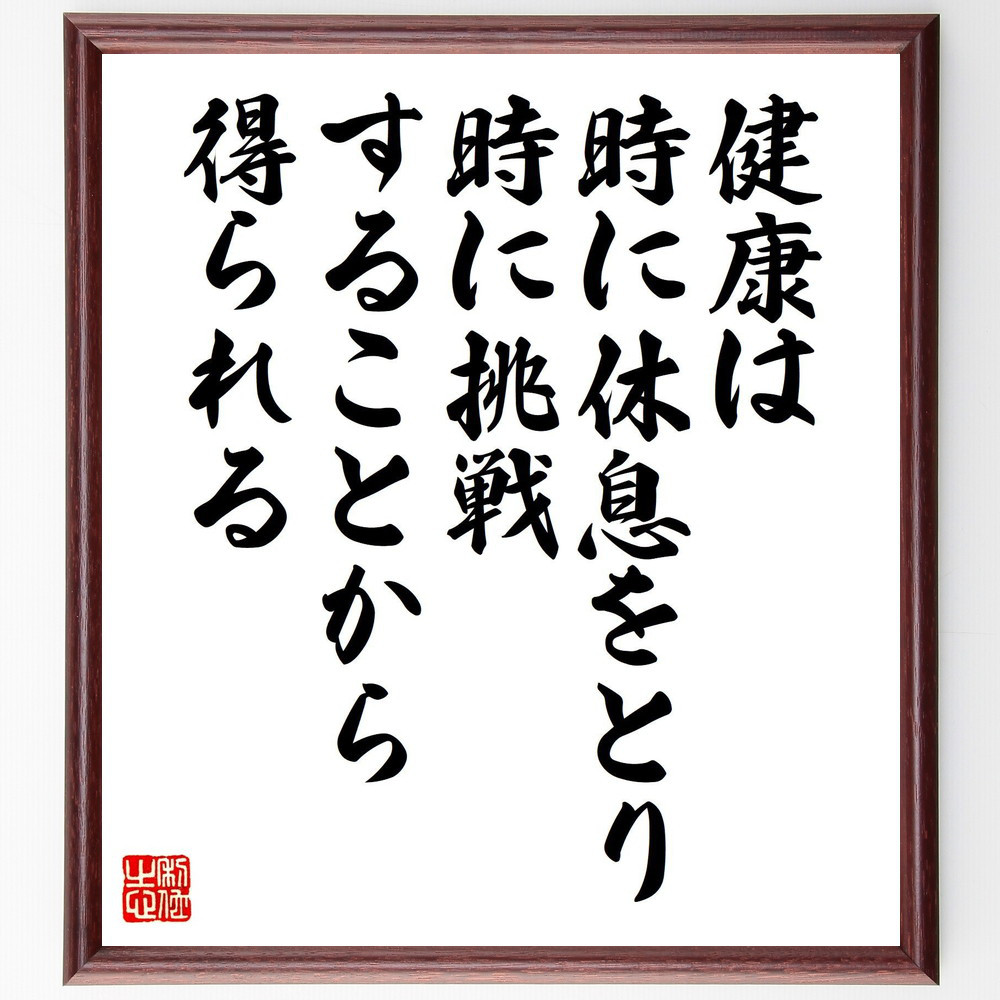 健康は
時に休息をとり
時に挑戦
することから
得られる